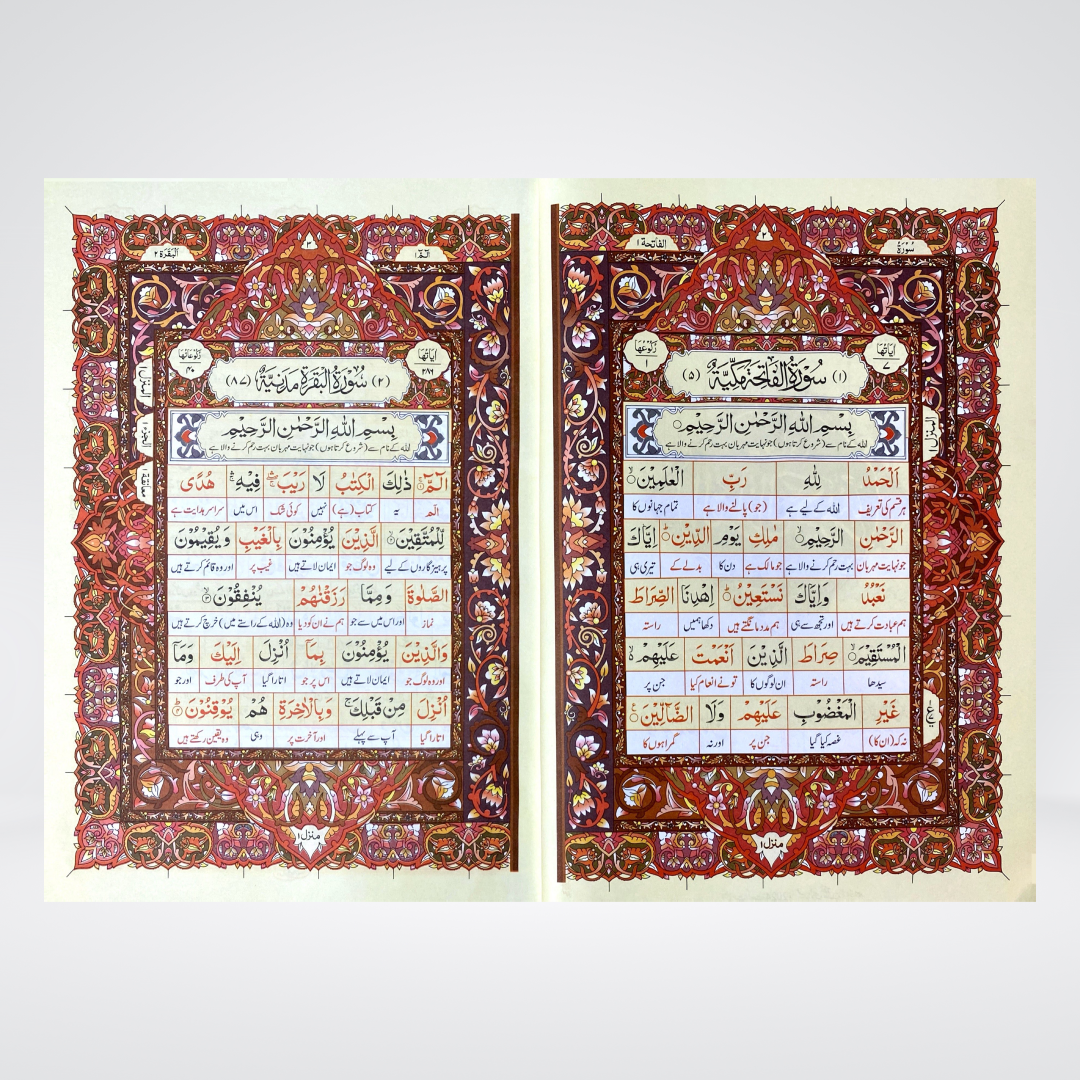 سُوْرَةُ
٢
اَلْفَاتِحَة ١
اٰيَاتُهَا ٧
(١) سُوْرَةُ الْفَاتِحَةِ مَكِّيَّةٌ (٥)
رُكُوْعُهَا ١
بِسْمِ اللّٰهِ الرَّحْمٰنِ الرَّحِيْمِ
اللہ کے نام سے (شروع کرتا ہوں) جو نہایت مہربان بہت رحم کرنے والا ہے
اَلْحَمْدُ لِلّٰهِ رَبِّ الْعٰلَمِيْنَ
ہر قسم کی تعریف اللہ کے لیے ہے (جو) پالنے والا ہے تمام جہانوں کا
الرَّحْمٰنِ الرَّحِيْمِ مٰلِكِ يَوْمِ الدِّيْنِ اِيَّاكَ
جو نہایت مہربان بہت رحم کرنے والا ہے جو مالک ہے دن کا بدلے کے تیری ہی
نَعْبُدُ وَاِيَّاكَ نَسْتَعِيْنُ اِهْدِنَا الصِّرَاطَ
ہم عبادت کرتے ہیں اور تجھ سے ہی ہم مدد مانگتے ہیں دکھا ہمیں راستہ
الْمُسْتَقِيْمَ صِرَاطَ الَّذِيْنَ اَنْعَمْتَ عَلَيْهِمْ
سیدھا راستہ ان لوگوں کا تو نے انعام کیا جن پر
غَيْرِ الْمَغْضُوْبِ عَلَيْهِمْ وَلَا الضَّآلِّيْنَ
نہ کہ (ان کا) غصہ کیا گیا جن پر اور نہ گمراہوں کا
منزل ١
الٓمّٓ ١
٣
اَلْبَقَرَة ٢
اٰيَاتُهَا ٢٨٦
(٢) سُوْرَةُ الْبَقَرَةِ مَدَنِيَّةٌ (٨٧)
رُكُوْعَاتُهَا ٤٠
بِسْمِ اللّٰهِ الرَّحْمٰنِ الرَّحِيْمِ
اللہ کے نام سے (شروع کرتا ہوں) جو نہایت مہربان بہت رحم کرنے والا ہے
الٓمّٓ ذٰلِكَ الْكِتٰبُ لَا رَيْبَ فِيْهِ هُدًى
الٓمٓ یہ کتاب (ہے) نہیں کوئی شک اس میں سراسر ہدایت ہے
لِّلْمُتَّقِيْنَ الَّذِيْنَ يُؤْمِنُوْنَ بِالْغَيْبِ وَيُقِيْمُوْنَ
پرہیزگاروں کے لیے وہ لوگ جو ایمان لاتے ہیں غیب پر اور وہ قائم کرتے ہیں
الصَّلٰوةَ وَمِمَّا رَزَقْنٰهُمْ يُنْفِقُوْنَ ٣
نماز اور اس میں سے جو ہم نے ان کو دیا وہ (اللہ کے راستے میں) خرچ کرتے ہیں
وَالَّذِيْنَ يُؤْمِنُوْنَ بِمَآ اُنْزِلَ اِلَيْكَ وَمَآ
اور وہ لوگ جو ایمان لاتے ہیں اس پر جو اتارا گیا آپ کی طرف اور جو
اُنْزِلَ مِنْ قَبْلِكَ وَبِالْاٰخِرَةِ هُمْ يُوْقِنُوْنَ
اتارا گیا آپ سے پہلے اور آخرت پر وہی وہ یقین رکھتے ہیں
منزل ١